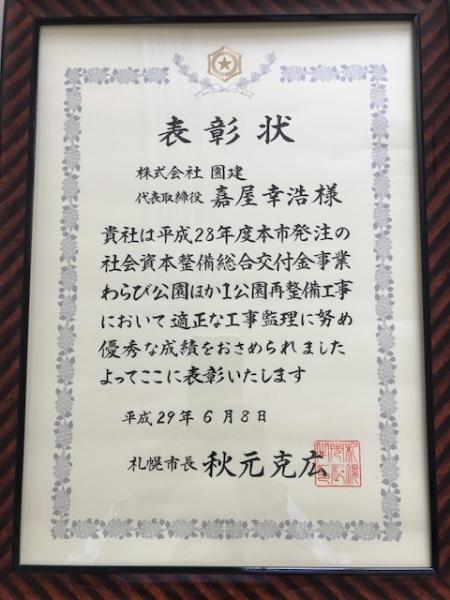 表彰状
株式会社 園建
代表取締役 嘉屋幸浩様
貴社は平成28年度本市発注の
社会資本整備総合交付金事業
わらび公園ほか1公園再整備工事
において適正な工事監理に努め
優秀な成績をおさめられました
よってここに表彰いたします
平成29年6月8日
札幌市長 秋元克広